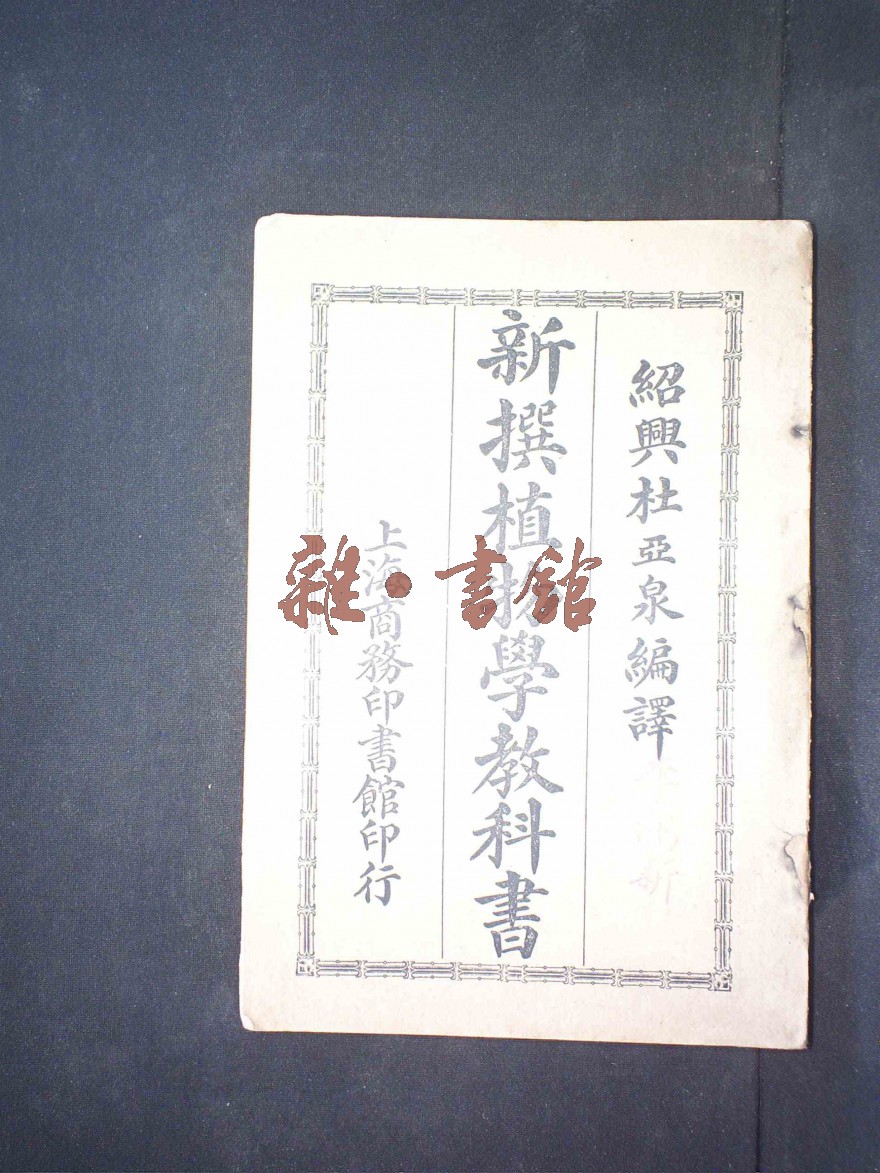 紹興杜亞泉編譯
新撰植物學教科書
上海商務印書館印行
雜·書館